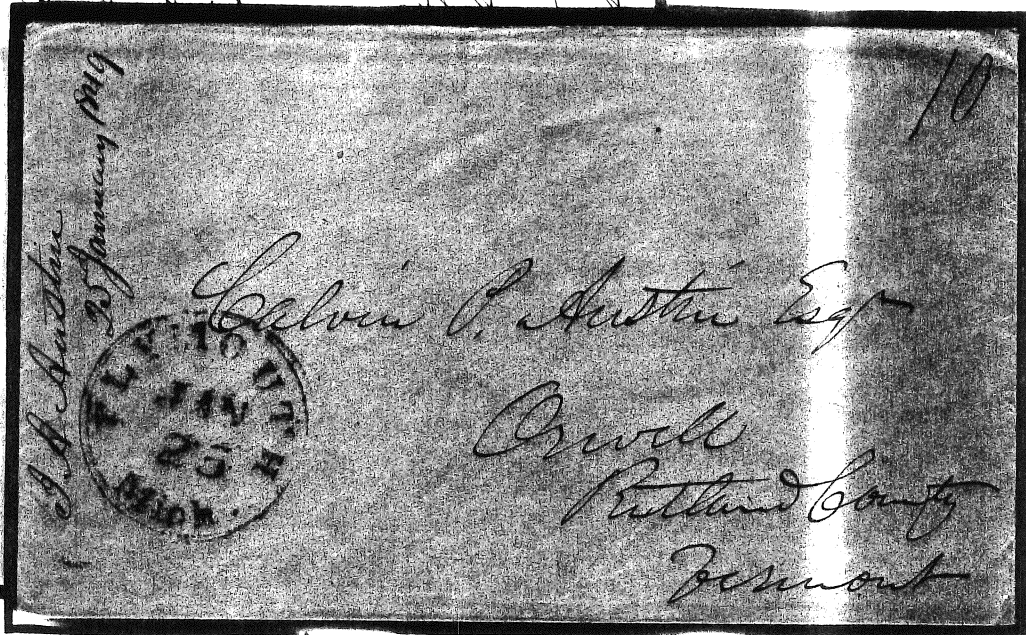 10
J. B. Austin
25 January 1849
PLYMOUTH
JAN
25
Mich.
Calvin P. Austin Esqr
Orwell
Rutland County
Vermont